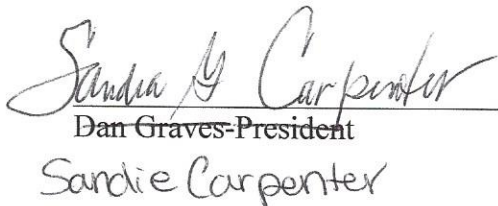 Sandra G Carpenter
Dan Graves-President
Sandie Carpenter